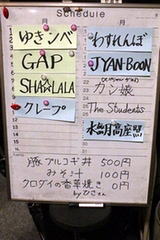 Schedule
月
月
ゆきンベ
わすれんぼ
GAP
JYAN-BOON
SHALALA
カン娘
クレープ
The Students
水曜高座黙
豚プルコギ丼 500円
みそ汁 100円
クロダイの香草焼き 0円
byひこさん